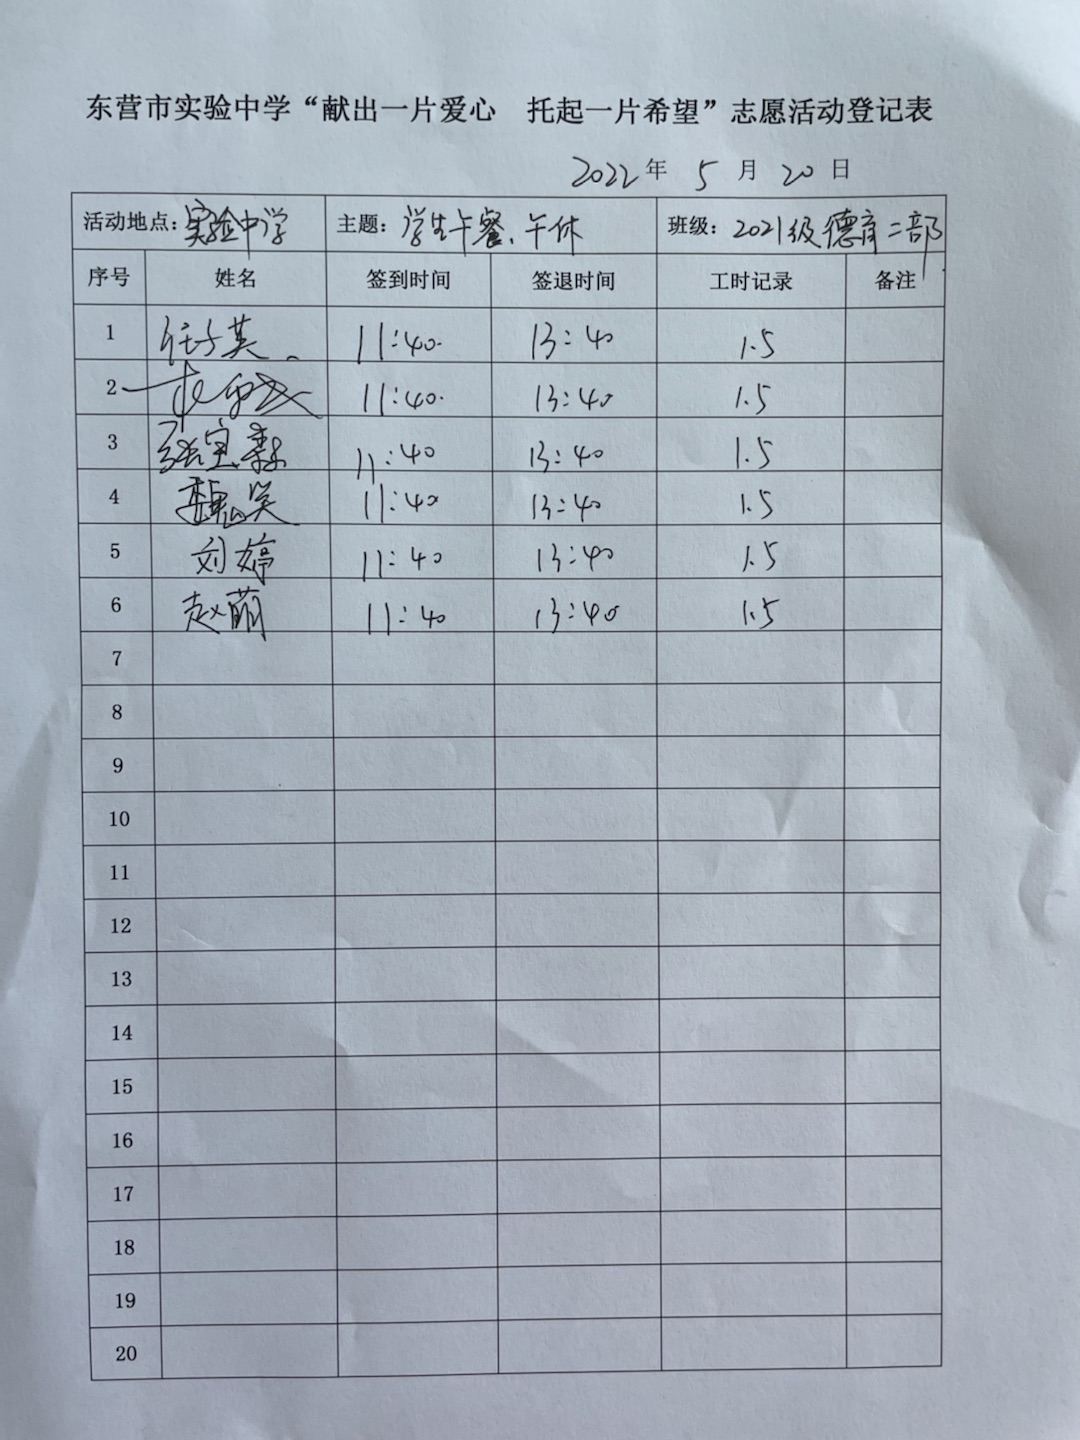 东营市实验中学“献出一片爱心 托起一片希望”志愿活动登记表
2022年 5月 20日
活动地点：实验中学 主题：学生午餐、午休 班级：2021级德育二部
序号 姓名 签到时间 签退时间 工时记录 备注
1 任子英 11:40 13:40 1.5
2 11:40 13:40 1.5
3 张宝森 11:40 13:40 1.5
4 魏笑 11:40 13:40 1.5
5 刘婷 11:40 13:40 1.5
6 赵萌 11:40 13:40 1.5
7
8
9
10
11
12
13
14
15
16
17
18
19
20